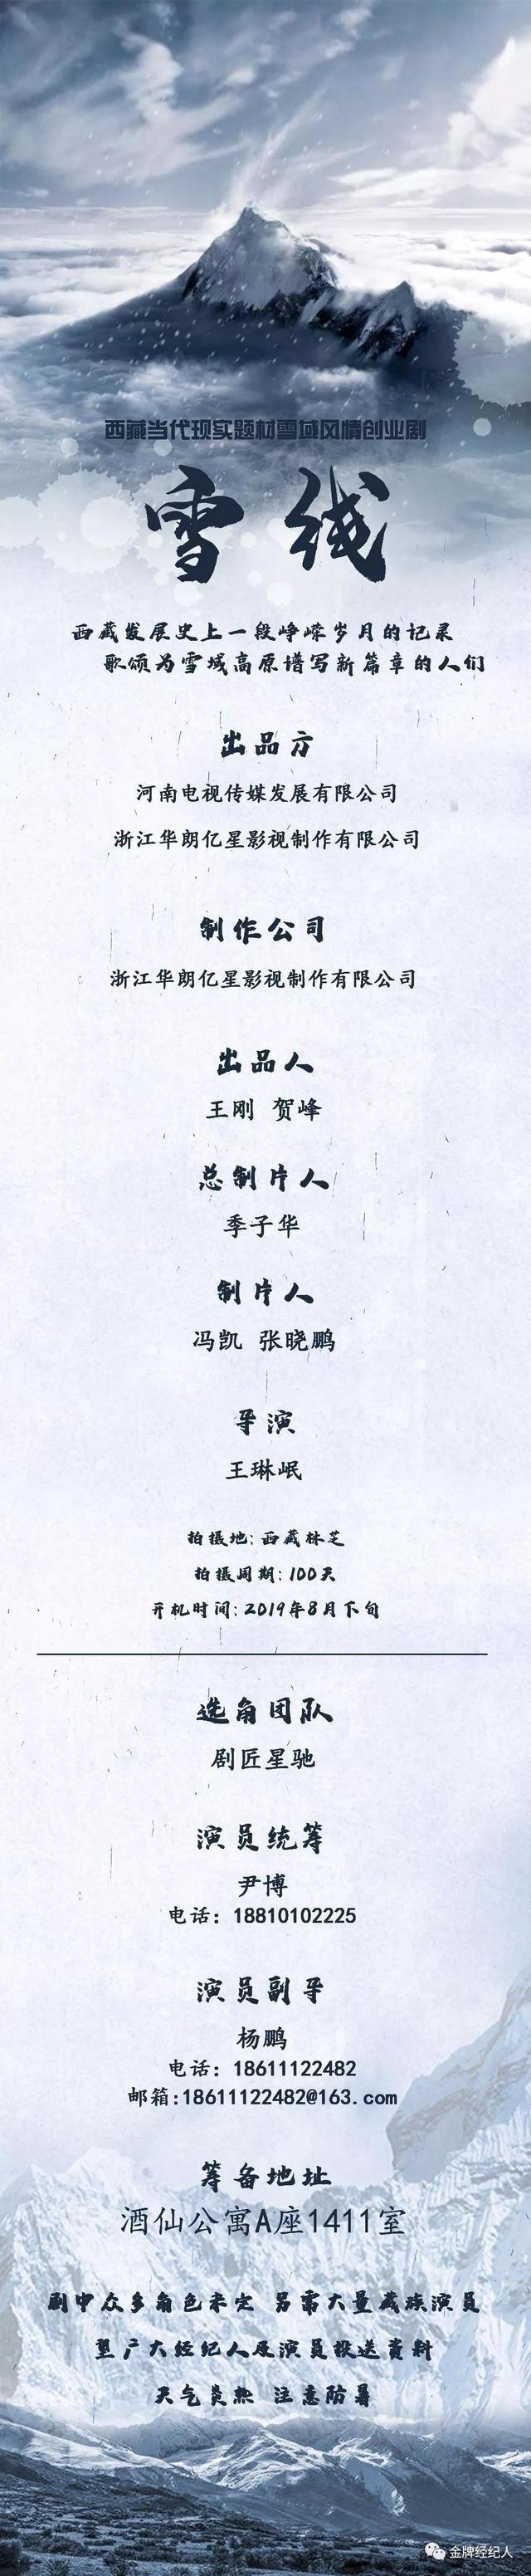 西藏当代现实题材雪域风情创业剧
雪线
西藏发展史上一段峥嵘岁月的记录
歌颂为雪域高原谱写新篇章的人们
出品方
河南电视传媒发展有限公司
浙江华朗亿星影视制作有限公司
制作公司
浙江华朗亿星影视制作有限公司
出品人
王刚 贺峰
总制片人
季子华
制片人
冯凯 张晓鹏
导演
王琳岷
拍摄地:西藏林芝
拍摄周期:100天
开机时间:2019年8月下旬
选角团队
剧匠星驰
演员统筹
尹博
电话:18810102225
演员副导
杨鹏
电话:18611122482
邮箱:18611122482@163.com
筹备地址
酒仙公寓A座1411室
剧中众多角色未定 另需大量藏族演员
望广大经纪人及演员投送资料
天气炎热 注意防暑
金牌经纪人